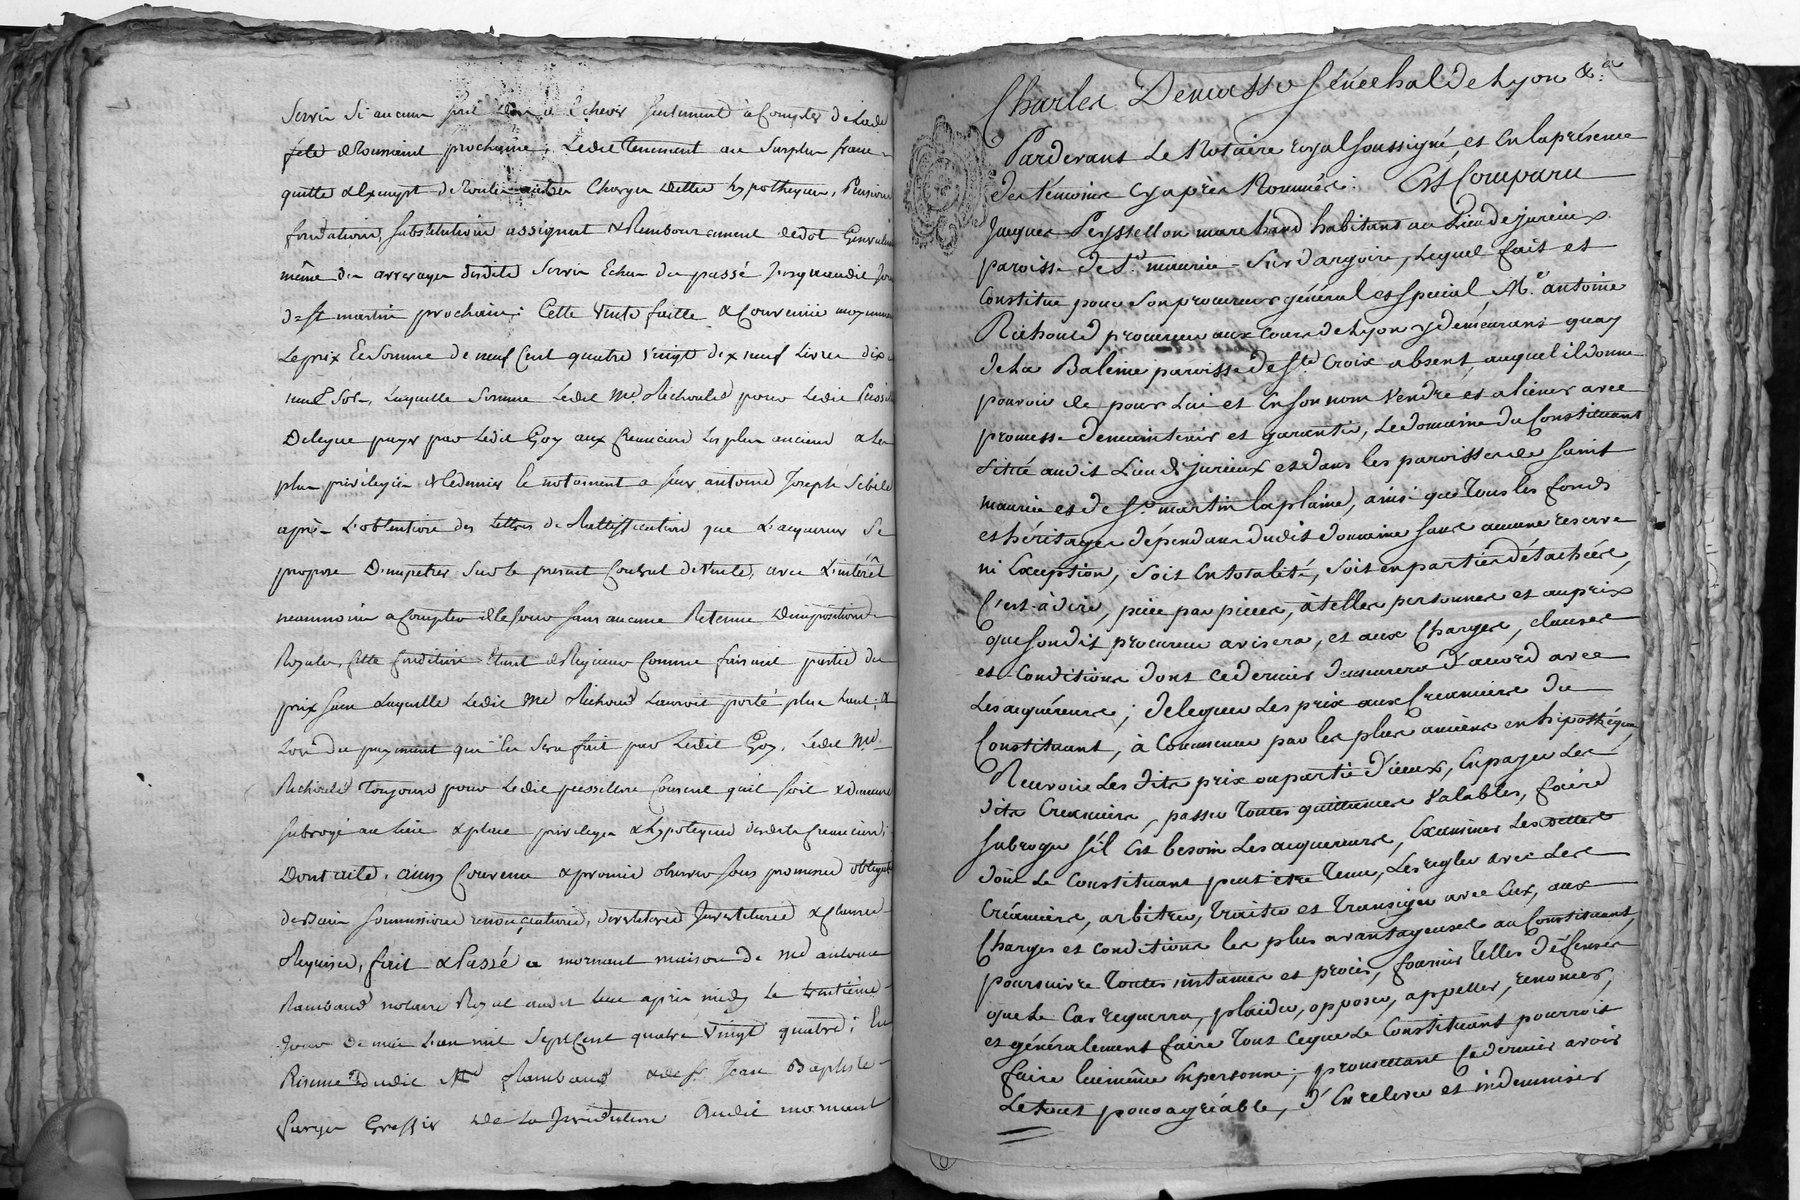 servis si aucuns sont dus a Echeoir seulement à Compter de lade
fete deToussaint prochaine, Ledit tenement au Surplus franc
quitte & Exempt de toutes autres Charges dettes hypotheques, Pensions
fondations, substitution assignat & Remboursement de dot Generalem
même des arrerages desdits servis Echus du passé jusquaudit jour
de St martin prochain: Cette vente faitte & Convenüe moyennant
Le prix & Somme de neuf Cent quatre vingt dix neuf Livres dix
neuf Sols, Laquelle Somme Ledit Me. Richoud pour Ledit Peissel
Delegue payer par Ledit Goy aux Creanciers Les plus anciens & Les
plus privilegiés & Ledernier & notament a sieur antoine Joseph Sibile
après L'obtention des Lettres de Rattiffication que L'acquereur Se
propose D'impetrer Sur le present Contrat de vente, avec L'intérêt
neanmoins a Compter de Ce jour sans aucune Retenue D'impositions
Royales, Cette Condition Etant de Rigueur Comme faisant partie du
prix sans Laquelle Ledit Me Richoud L'auroit porté plus haut; &
Lors du payement qui En Sera fait par Ledit Goy, Ledit Me
Richoud toujours pour Ledit peissellon Consent quil soit & demeure
subrogé au Lieu & place privileges & hypoteques desdits Creanciers;
Dont acte, ainsy Convenu & promis observer sous promesses obligat
de Biens soumissions renonçiations, devetitures Investitures & Clauses
Requises, fait & Passé a mornant maison de Me antoine
Rambaud notaire Royal audit lieu après midy le trentieme
Jour de mai L'an mil Sept Cent quatre Vingt quatre; En
Presence dudit Me Rambaud & de sr. Jean Baptiste
Farges Greffier de La Jurisdiction dudit mornant
Charles Demasso sénéchal de Lyon &.a
Pardevant Le Notaire royal soussigné, et En la présence
des témoins Cy après Nommés: Est Comparu
Jaques Peyssellon marchand habitant au Lieu de jurieux
paroisse de St. maurice-Sur dargoire, Lequel fait et
Constitue pour Son procureur général et spécial, Me. antoine
Richoud procureur aux Cours de Lyon y demeurant quay
de La Baleine paroisse de Ste Croix absent, auquel il donne
pouvoir de pour Lui et En son nom Vendre et aliéner avec
promesse de maintenir et garantir, Le domaine du Constituant
Situé audit Lieu de jurieux et dans les paroisses de saint
maurice et de St. martin la plaine, ainsi que Tous les fonds
et héritages dépendans dudit domaine sans aucune reserve
ni Exception, soit En totalité, soit en parties détachées,
C'est-à-dire, piece par pieces, à telles personnes et au prix
que Son dit procureur avisera, et aux Charges, clauses
et Conditions dont ce dernier demeurera d'accord avec
Les acquéreurs; deleguer Les prix aux Creanciers du
Constituant, à Commencer par les plus anciens en hipothéque,
Recevoir Les dits prix ou partie d'iceux, En payer Les
dits Creanciers, passer toutes quittances Valables, faire
subroger s'il Est besoin Les acquereurs, Examiner Les dettes
dont Le Constituant peut être Tenu, Les regler avec Les
Créanciers, arbitrer, Traiter et transiger avec Eux, aux
Charges et conditions les plus avantageuses au Constituant,
poursuivre toutes instances et procès, fournir telles défenses
que Le Cas requerra, plaider, opposer, appeller, renoncer,
et généralement faire tout ce que Le Constituant pourroit
faire lui même En personne; promettant Ce dernier avoir
Le tout pour agréable, d'En relever et indemniser